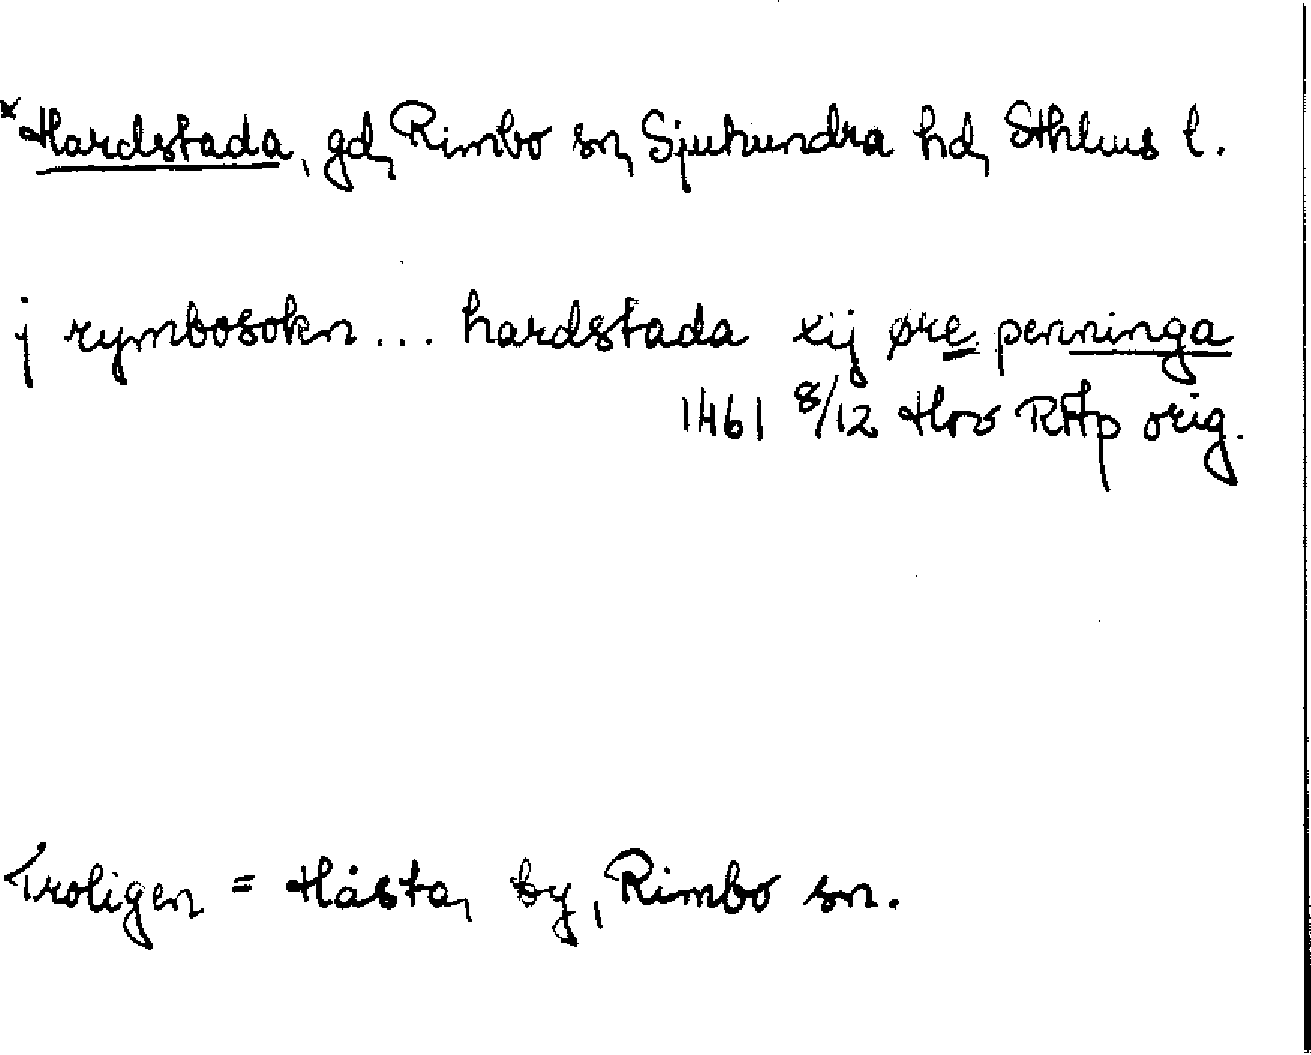 *Hardstada, gd, Rimbo sn, Sjuhundra hd, Sthlms l.
j rymbosokn... hardstada xij øre penninga
1461 8/12 Hov RAp orig.
Troligen = Håsta, by, Rimbo sn.